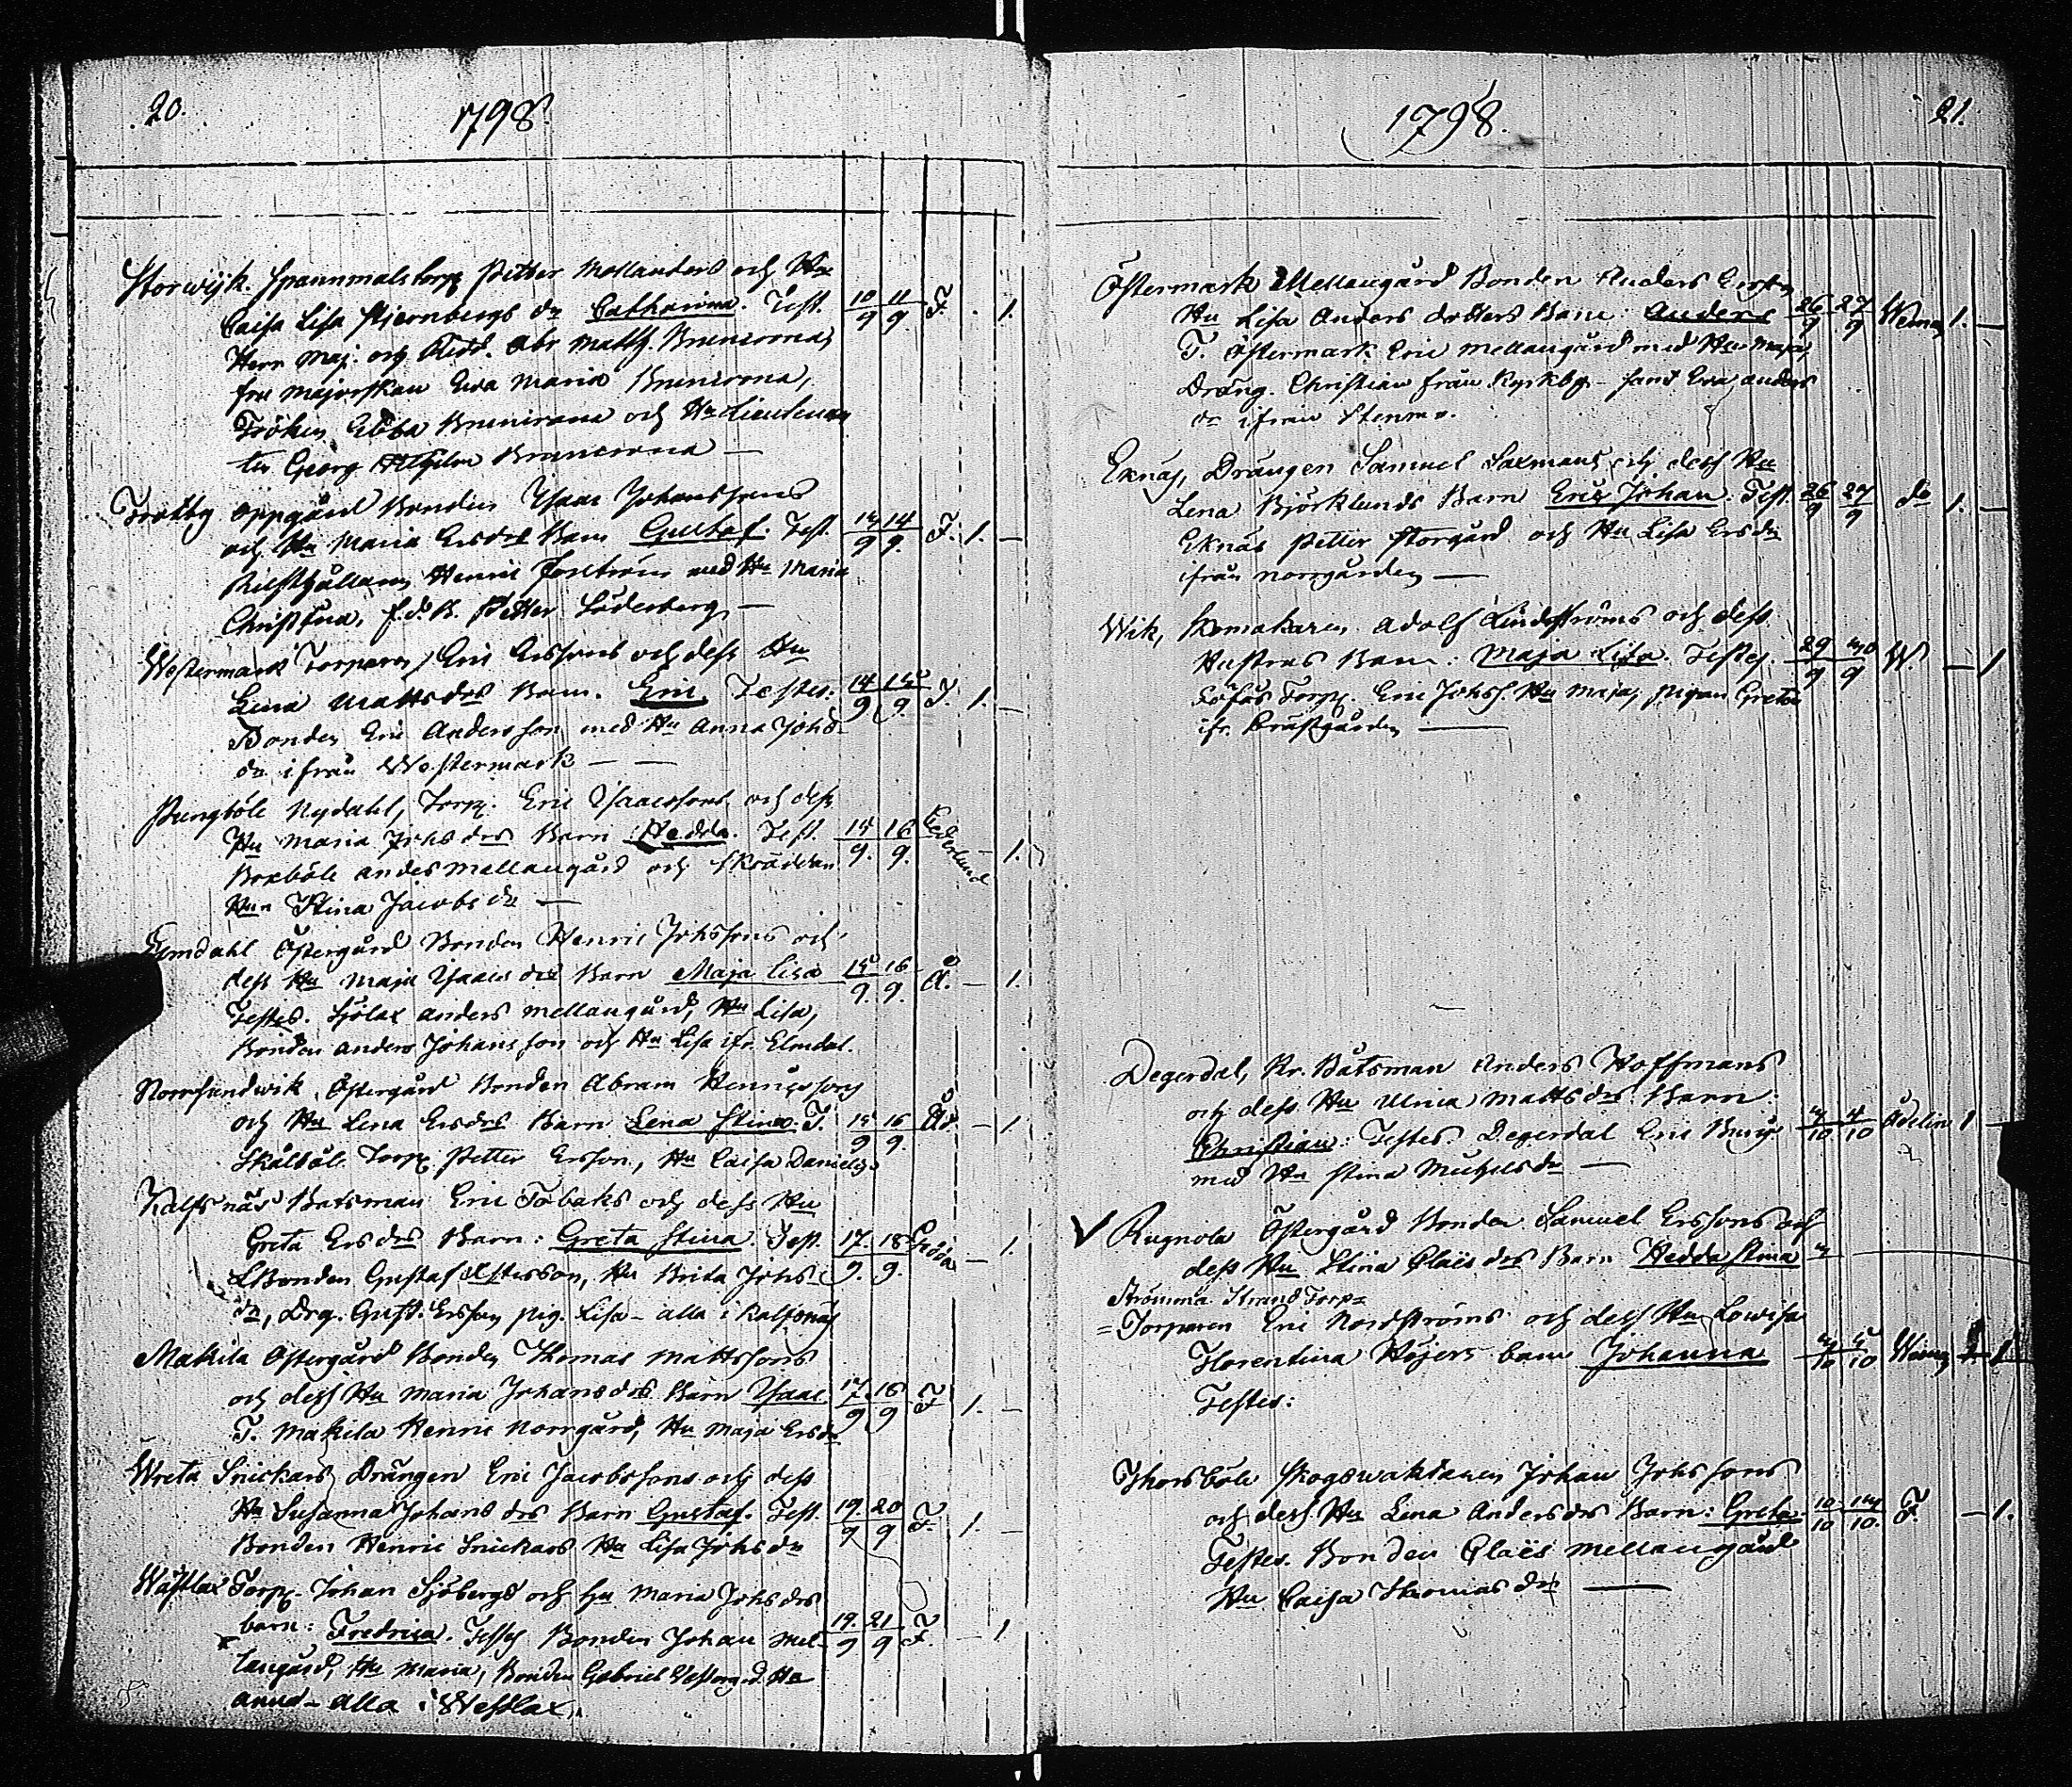 20.
1798.
Storwijk. Spannmåls torp. Petter Mollanders och Hu
Caisa Lisa Stjernbergs dr Catharina. Test. 10/9 11/9 F. . 1.
Herr Maj. och Ridd. Abr Matth. Bruncrona,
fru Majorskan Eva Maria Bruncrona,
Fröken Ebba Bruncrona och Hr Lieutenan
ten Georg Wilhelm Bruncrona —
Trotby Oppgård Bonden Isaac Johanssons
och Hu Maria Ersdrs Barn Gustaf. Test. 14/9 F. 1. —
Henric med Hu Maria
Christina, Petter Söderberg —
Westermark Torparen Eric Erssons och dess Hu
Lena Mattsdrs Barn. Eric Testes. 14/9 15/9 F. 1. —
Bonden Eric Andersson med Hu Anna Johs
dr ifrån Westermark — —
Pungböle Nydahl, Torp. Eric Isaacssons och dess
Hu Maria Johsdrs Barn Hedda. Test. 15/9 16/9 Cederlund — 1.
Boxböle Anders Mellangård och Skräddan
Hu Stina Jacobs dr —
Elmdahl Östergård Bonden Henric Johssons och
dess Hu Maja Isaacs drs Barn Maja Lisa 15/9 16/9 Å. — 1.
Testes. Sjölax Anders Mellangård, Hu Lisa,
Bonden Anders Johansson och Hu Lisa ifr. Elmdal.
Norrsundwik, Östergård Bonden Abram Henricssons
och Hu Lena Ersdrs Barn Lena Stina. T. 15/9 16/9 Åd — 1
Skålböle Torp. Petter Ersson, Hu Caisa Danielsdr
Kalfsnäs Båtsman Eric Tobaks och dess Hu
Greta Ersdrs Barn: Greta Stina. Test. 17./9. 18/9. — 1.
Bonden Gustaf Ersson, Hu Brita Johs
dr, Drg. Gust. Ersson, pig. Lisa — alla i Kalfsnäs
Makila Östergård Bonden Thomas Mattssons
och dess Hu Maria Johansdrs Barn Isaac. 17/9 18/9 F 1. —
T. Makila Henric Norrgård, Hu Maja Ersdr
Wreta Snickars Drängen Eric Jacobssons och dess
Hu Susanna Johans drs Barn Gustaf. Test. 19./9 20/9 F. 1. —
Bonden Henric Snickars Hu Lisa Johsdr
Wästlax Torp. Johan Sjöbergs och Hu Maria Johsdrs
barn: Fredrica. Testes Bonden Johan Mel- 19./9 21/9 F. — 1
langård, Hu Maria, Bonden Gabriel Hu
Anna — alla i Westlax.
1798.
21.
Östermark Mellangård Bonden Anders Erssons
Hu Lisa Anders dotters Barn: Anders 26/9 27/9 Weman 1. —
T. Östermark Eric Mellangård med Hu Maja,
Dräng. Christian från Kyrkby — samt Eva Anders
dr ifrån
Eknäs, Drängen Samuel Saxmans och dess Hu
Lena Björklunds Barn Eric Johan. Test. 26/9 27/9 do 1. —
Eknäs Petter Storgård och Hu Lisa Ersdr
ifrån Norrgården —
Wik, Skomakaren Adolf Lindströms och dess
Hustrus Barn: Maja Lisa. Testes. 29/9 30/9 W — 1
Torp. Eric Johss. Hu Maja, pigan Greta
ifr. Prästgården —
Degerdal, Kr. Båtsman Anders Hoffmans
och dess Hu Ulrica Mattsdrs Barn
Christian: Testes. Degerdal Eric 3/10 4/10 Ådelin 1 —
med Hu Stina Michelsdr —
Rugnola Östergård Bonden Samuel Erssons och
dess Hu Stina Claësdrs Barn Hedda Stina
Strömma Strand Torp=
=Torparen Eric Nordströms och dess Hu Lowisa
Florentina Höjers barn Johanna 4/10 5/10 Weman 1
Testes:
Thorsböle Skogswaktaren Johan Johssons
och dess Hu Lena Andersdrs Barn: Greta. 10/10 14/10. F. — 1.
Testes. Bonden Claës Mellangård
Hu Caisa Thomasdr —